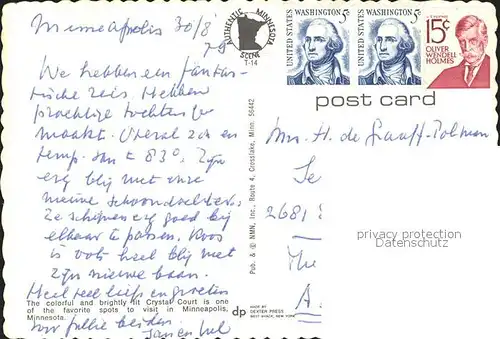 Minneapolis 30/8
79
AUTHENTIC MINNESOTA SCENE
T-14
UNITED STATES WASHINGTON 5c
UNITED STATES WASHINGTON 5c
15¢
OLIVER
WENDELL
HOLMES
post card
We hebben een fantas-
tische reis. Hebben
prachtige tochten ge
maakt. Overal zon en
temp. van ± 83°. Zijn
erg blij met onze
nieuwe schoondochter.
Ze schijnen erg goed bij
elkaar te passen. Roos
is ook heel blij met
zijn nieuwe baan.
Heel veel liefs en groeten
voor jullie beiden.
Jan en
The colorful and brightly lit Crystal Court is one
of the favorite spots to visit in Minneapolis,
Minnesota.
Pub. & © NMN, Inc., Route 4, Crosslake, Minn. 56442
dp
MADE BY
DEXTER PRESS
WEST NYACK, NEW YORK
Mrs. H. de Graaff-
2681
A
privacy protection
Datenschutz